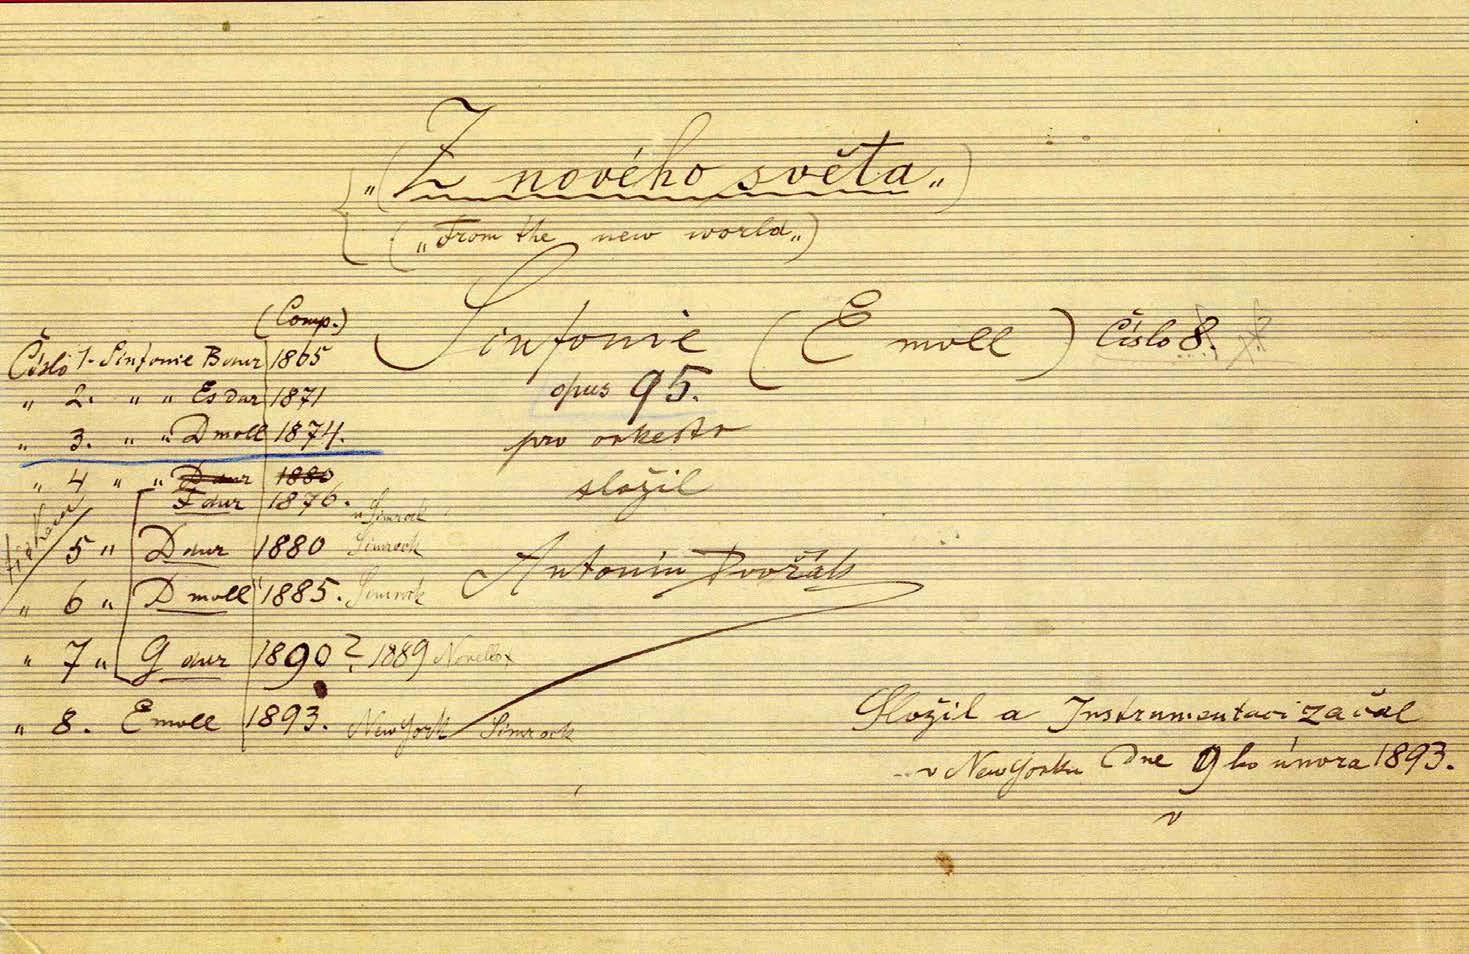 „Z nového světa„
(„From the new world„)
Sinfonie (E moll) Číslo 8.
opus 95.
pro orkestr
složil
Antonín Dvořák
(Comp.)
Číslo 1. Sinfonie B dur 1865
„ 2. „ „ Es dur 1871
„ 3. „ „ D moll 1874.
„ 4 „ „ D dur 1880
F dur 1876. „ Simrock
5 „ D dur 1880 Simrock
„ 6 „ D moll 1885. Simrock
„ 7 „ G dur 1890? 1889 Novello
„ 8. E moll 1893. New York Simrock
Složil a Instrumentaci začal
v New Yorku Dne 9ho února 1893.